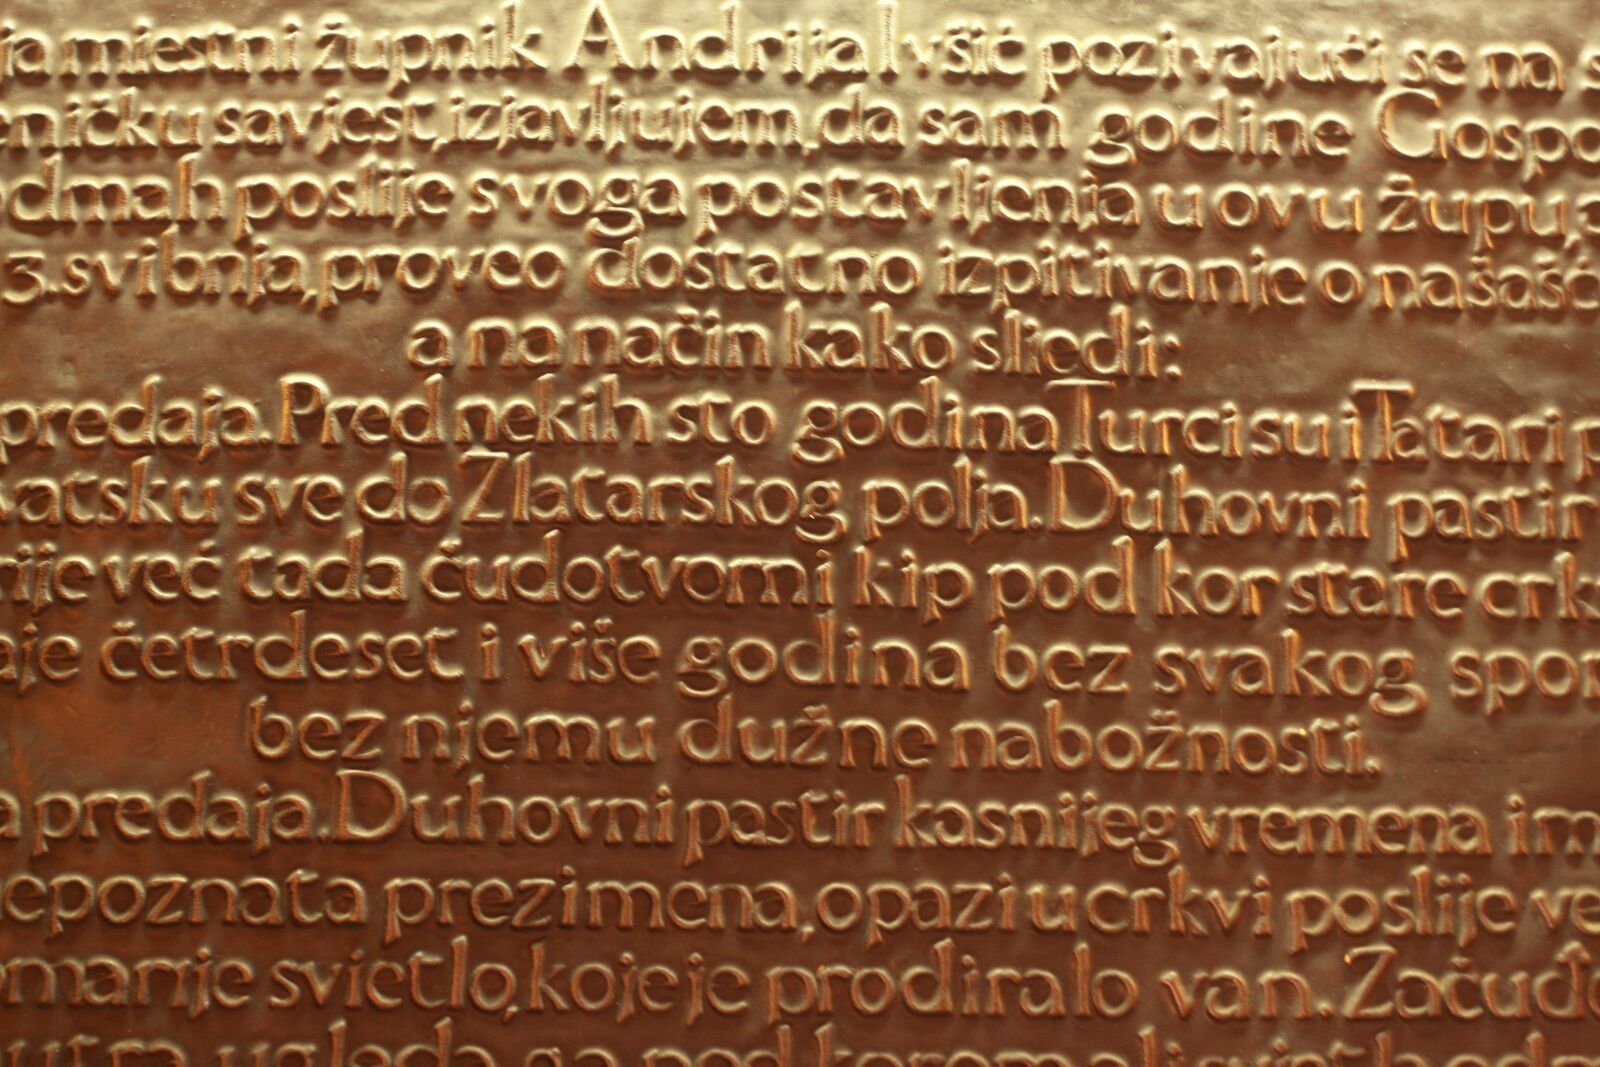 ja miestni župnik Andrija Ivšić pozivajući se na s
eničku savjest, izjavljujem, da sam godine Gospo
dmah poslije svoga postavljenja u ovu župu, a
3. svibnja, proveo dostatno izpitivanje o našašć
a na način kako sliedi:
predaja. Pred nekih sto godina Turci su i Tatari p
vatsku sve do Zlatarskog polja. Duhovni pastir
rije već tada čudotvorni kip pod kor stare crk
aje četrdeset i više godina bez svakog spor
bez njemu dužne nabožnosti.
a predaja. Duhovni pastir kasnijeg vremena i m
epoznata prezimena, opazi u crkvi poslije ve
omarije svietlo, koje je prodiralo van. Začuđe
utra ugleda ga pod korom ali sviet